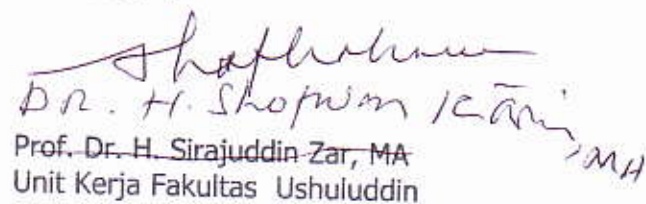 DR. H. Shofwan Karim, MA
Prof. Dr. H. Sirajuddin Zar, MA
Unit Kerja Fakultas Ushuluddin